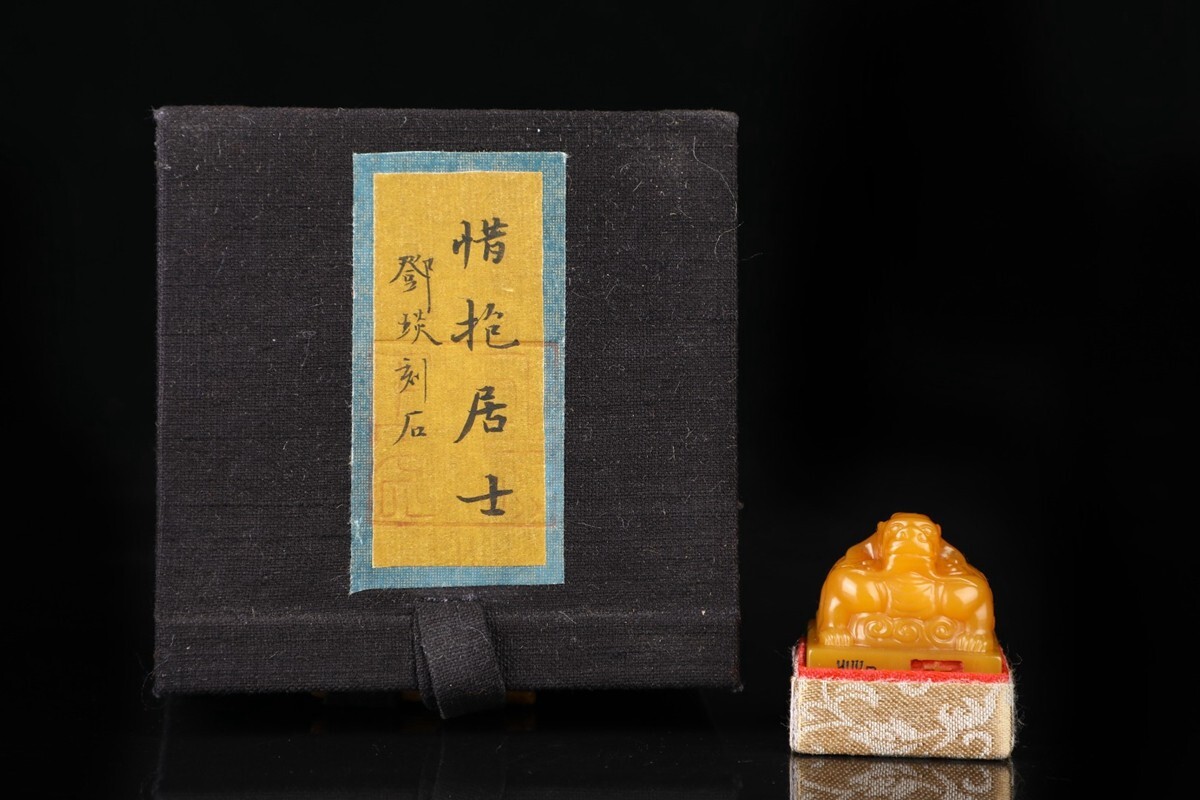 惜抱居士
鄧琰刻石